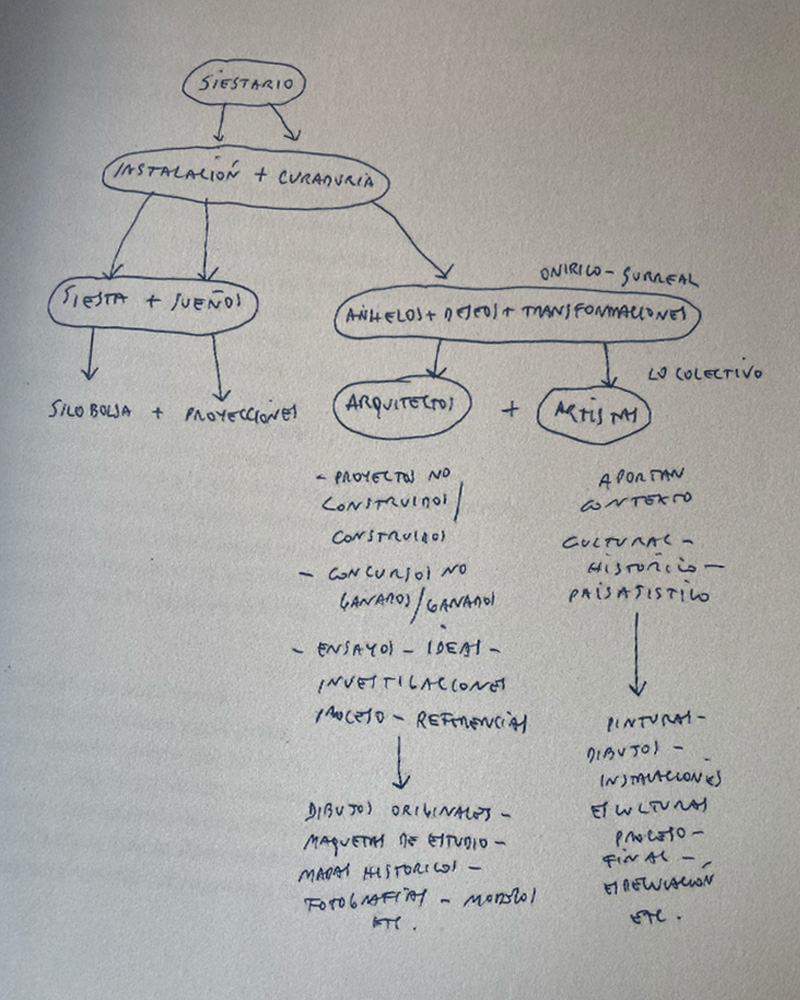 SIESTARIO
INSTALACIÓN + CURADURIA
SIESTA + SUEÑOS
ONIRICO - SURREAL
AÑHELOS + DESEOS + TRANSFORMACIONES
LO COLECTIVO
SILO BOLSA + PROYECCIONES
ARQUITECTOS + ARTISTAS
- PROYECTOS NO
CONSTRUIDOS /
CONSTRUIDOS
- CONCURSOS NO
GANADOS / GANADOS
- ENSAYOS - IDEAS -
INVESTIGACIONES
PROCESO - REFERENCIAS
DIBUJOS ORIGINALES -
MAQUETAS DE ESTUDIO -
MAPAS HISTORICOS -
FOTOGRAFIAS - MODELOS
ETC.
APORTAN
CONTEXTO
CULTURAL -
HISTORICO -
PAISAJISTICO
PINTURAS -
DIBUJOS -
INSTALACIONES
ESCULTURAS
PROCESO -
FINAL -
ESPECULACIÓN
ETC.